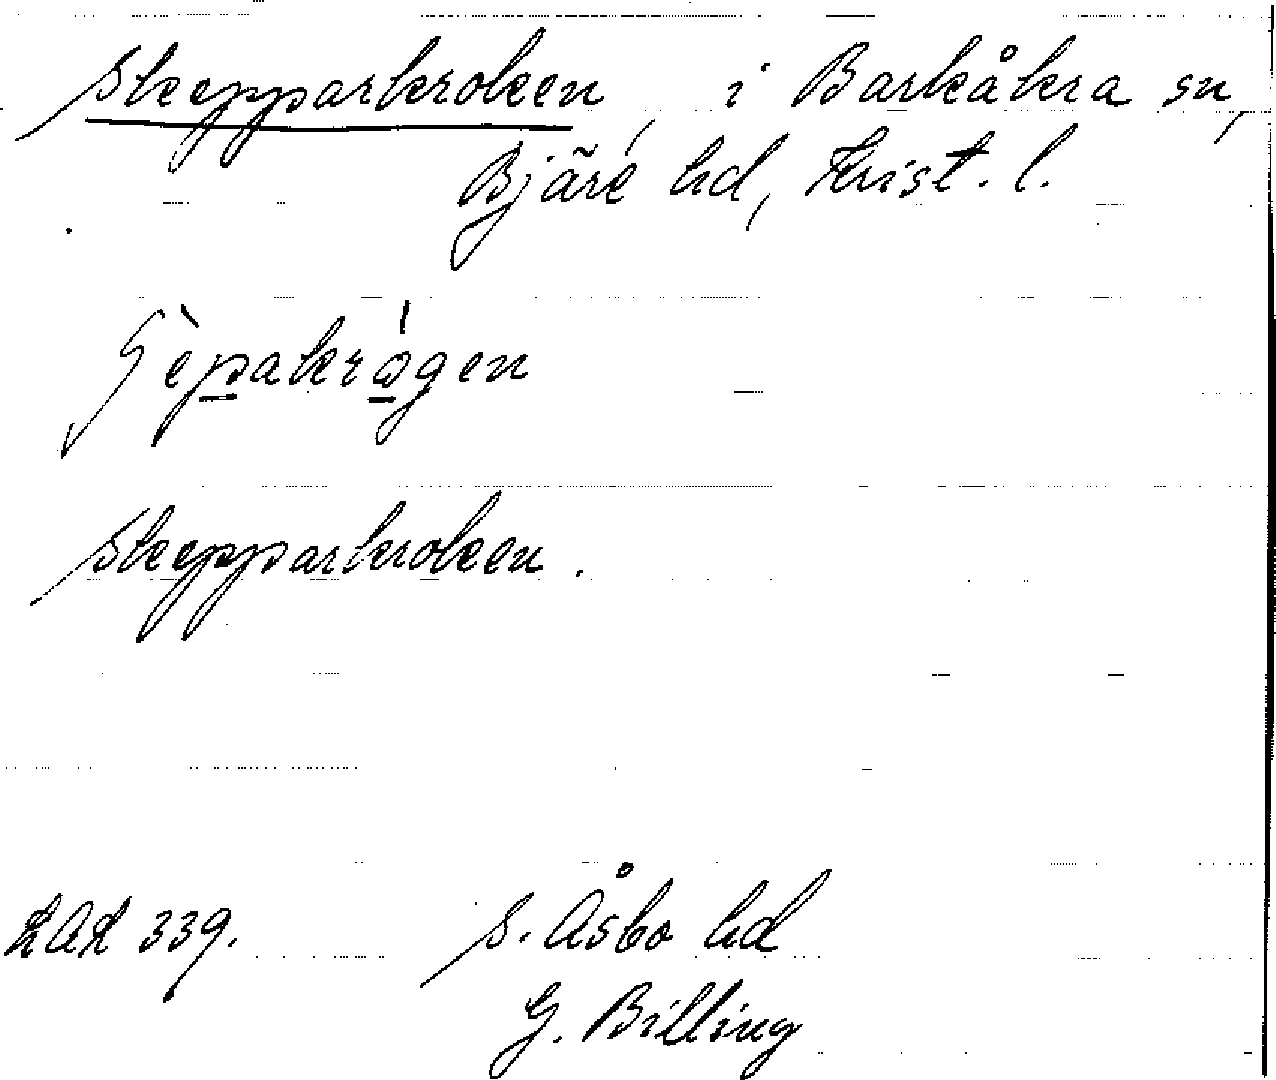 Skepparkroken i Barkåkra sn,
Bjäre hd, Krist. l.
Skepparkroken.
LAL 339. S. Åsbo hd
G. Billing